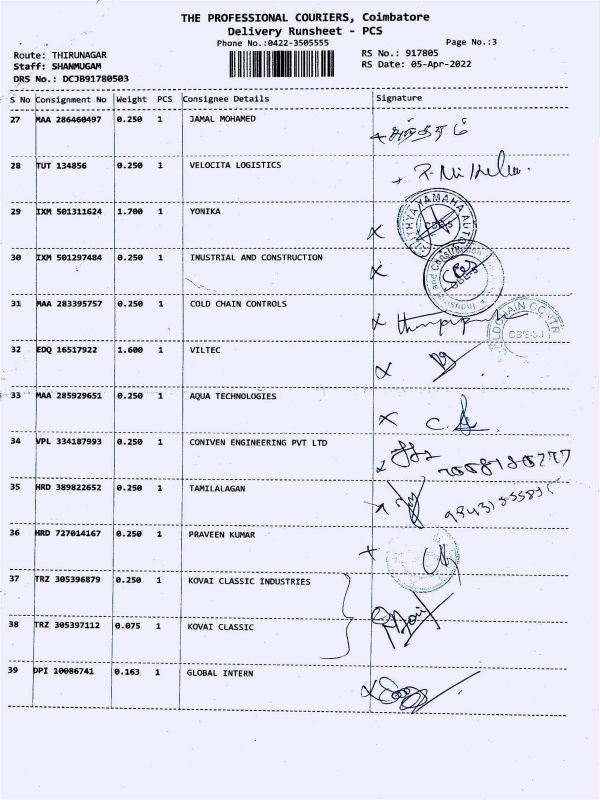 THE PROFESSIONAL COURIERS, Coimbatore
Delivery Runsheet - PCS
Phone No.:0422-3505555
Page No.:3
Route: THIRUNAGAR
RS No.: 917805
Staff: SHANMUGAM
RS Date: 05-Apr-2022
DRS No.: DCJB91780503
S No Consignment No Weight PCS Consignee Details Signature
27 MAA 286460497 0.250 1 JAMAL MOHAMED
28 TUT 134856 0.250 1 VELOCITA LOGISTICS
29 IXM 501311624 1.700 1 YONIKA
30 IXM 501297484 0.250 1 INUSTRIAL AND CONSTRUCTION
31 MAA 283395757 0.250 1 COLD CHAIN CONTROLS
32 EDQ 16517922 1.600 1 VILTEC
33 MAA 285929651 0.250 1 AQUA TECHNOLOGIES
34 VPL 334187993 0.250 1 CONIVEN ENGINEERING PVT LTD
35 HRD 389822652 0.250 1 TAMILALAGAN
36 HRD 727014167 0.250 1 PRAVEEN KUMAR
37 TRZ 305396879 0.250 1 KOVAI CLASSIC INDUSTRIES
38 TRZ 305397112 0.075 1 KOVAI CLASSIC
39 DPI 10086741 0.163 1 GLOBAL INTERN